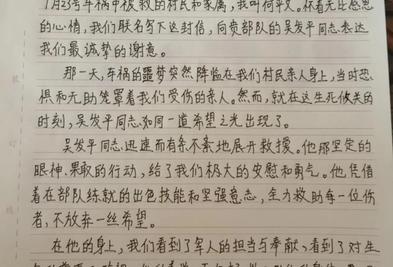 1月23号车祸中被救的村民和家属，我叫何平文。怀着无比感恩
的心情，我们联名写下这封信，向贵部队的吴发平同志表达
我们最诚挚的谢意。
那一天，车祸的噩梦突然降临在我们村民亲人身上，当时恐
惧和无助笼罩着我们受伤的亲人。然而，就在这生死攸关的
时刻，吴发平同志如同一道希望之光出现了。
吴发平同志迅速而有条不紊地展开救援。他那坚定的
眼神、果敢的行动，给了我们极大的安慰和勇气。他凭借
着在部队练就的出色技能和坚强意志，全力救助每一位伤
者，不放弃一丝希望。
在他的身上，我们看到了军人的担当与奉献、看到了对生